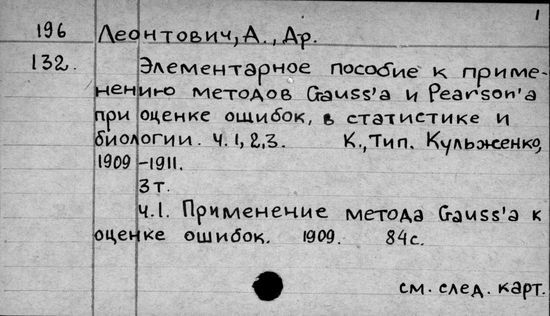 1
196 Леонтович, А., Др.
132. Элементарное пособие к приме-
нению методов Gauss'a и Pearson'a
при оценке ошибок, в статистике и
биологии. Ч. 1, 2, 3. К., Тип. Кульженко,
1909-1911.
3 т.
Ч.1. Применение метода Gauss'a к
оценке ошибок. 1909. 84 с.
см. след. карт.